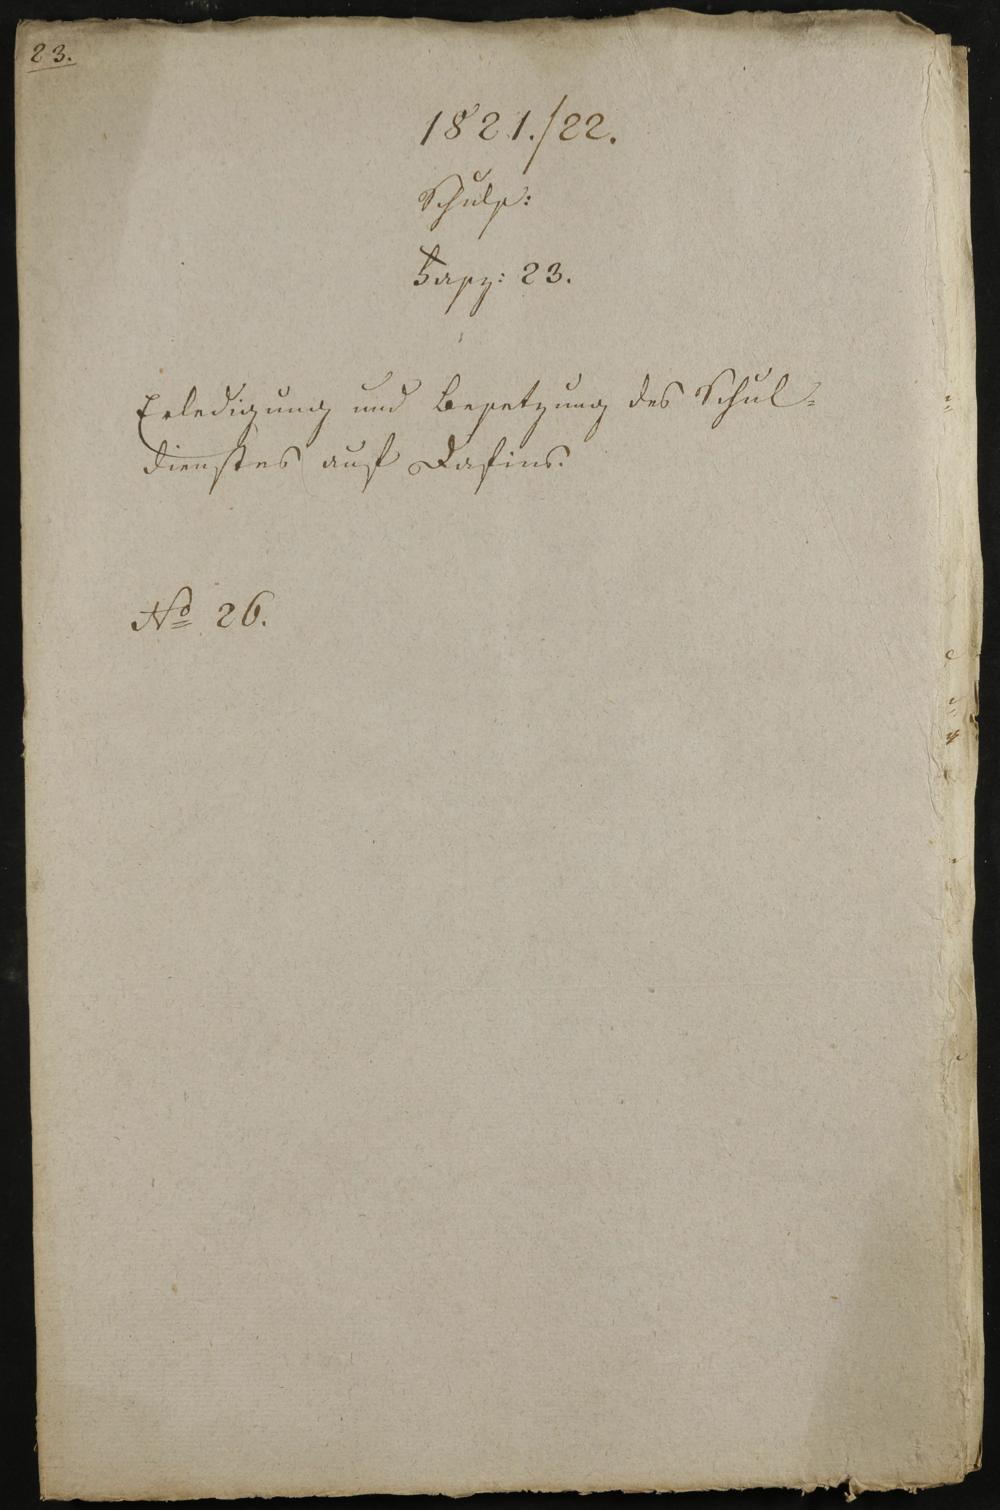 23.
1821./22.
Schule:
Fasz: 23.
Erledigung und Besetzung des Schul-
dienstes auf Dafins.
No 26.